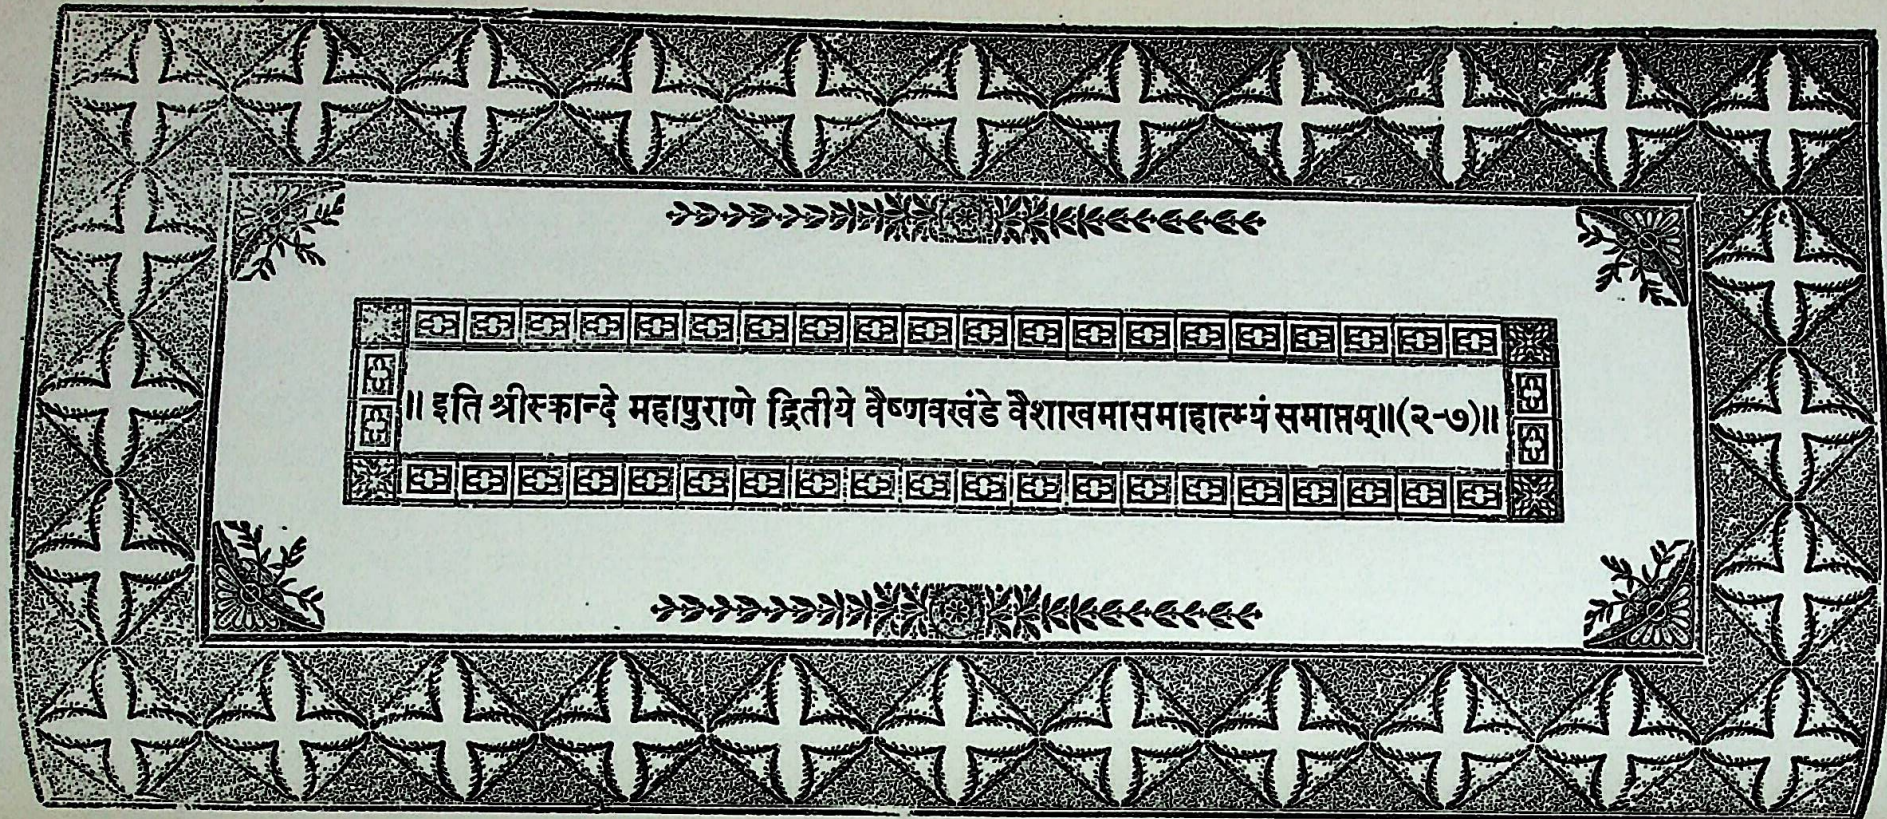 ॥ इति श्रीस्कान्दे महापुराणे द्वितीये वैष्णवखंडे वैशाखमासमाहात्म्यं समाप्तम्॥(२-७)॥